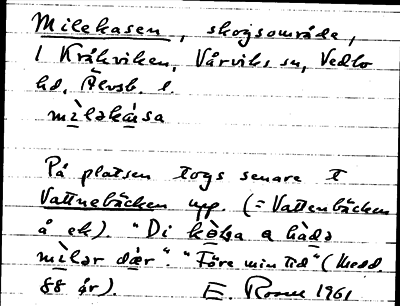 Milekasen, skogsområde,
i Kråkviken, Vårviks sn, Vedbo
hd, Älvsb. l.
mìləkása
På platsen togs senare
Vattnebäcken upp. (= Vattenbäcken
å ek). "Di kòla a hàdə
mìlər där". "Före min tid" (Medd.
88 år). E. Rosell 1961